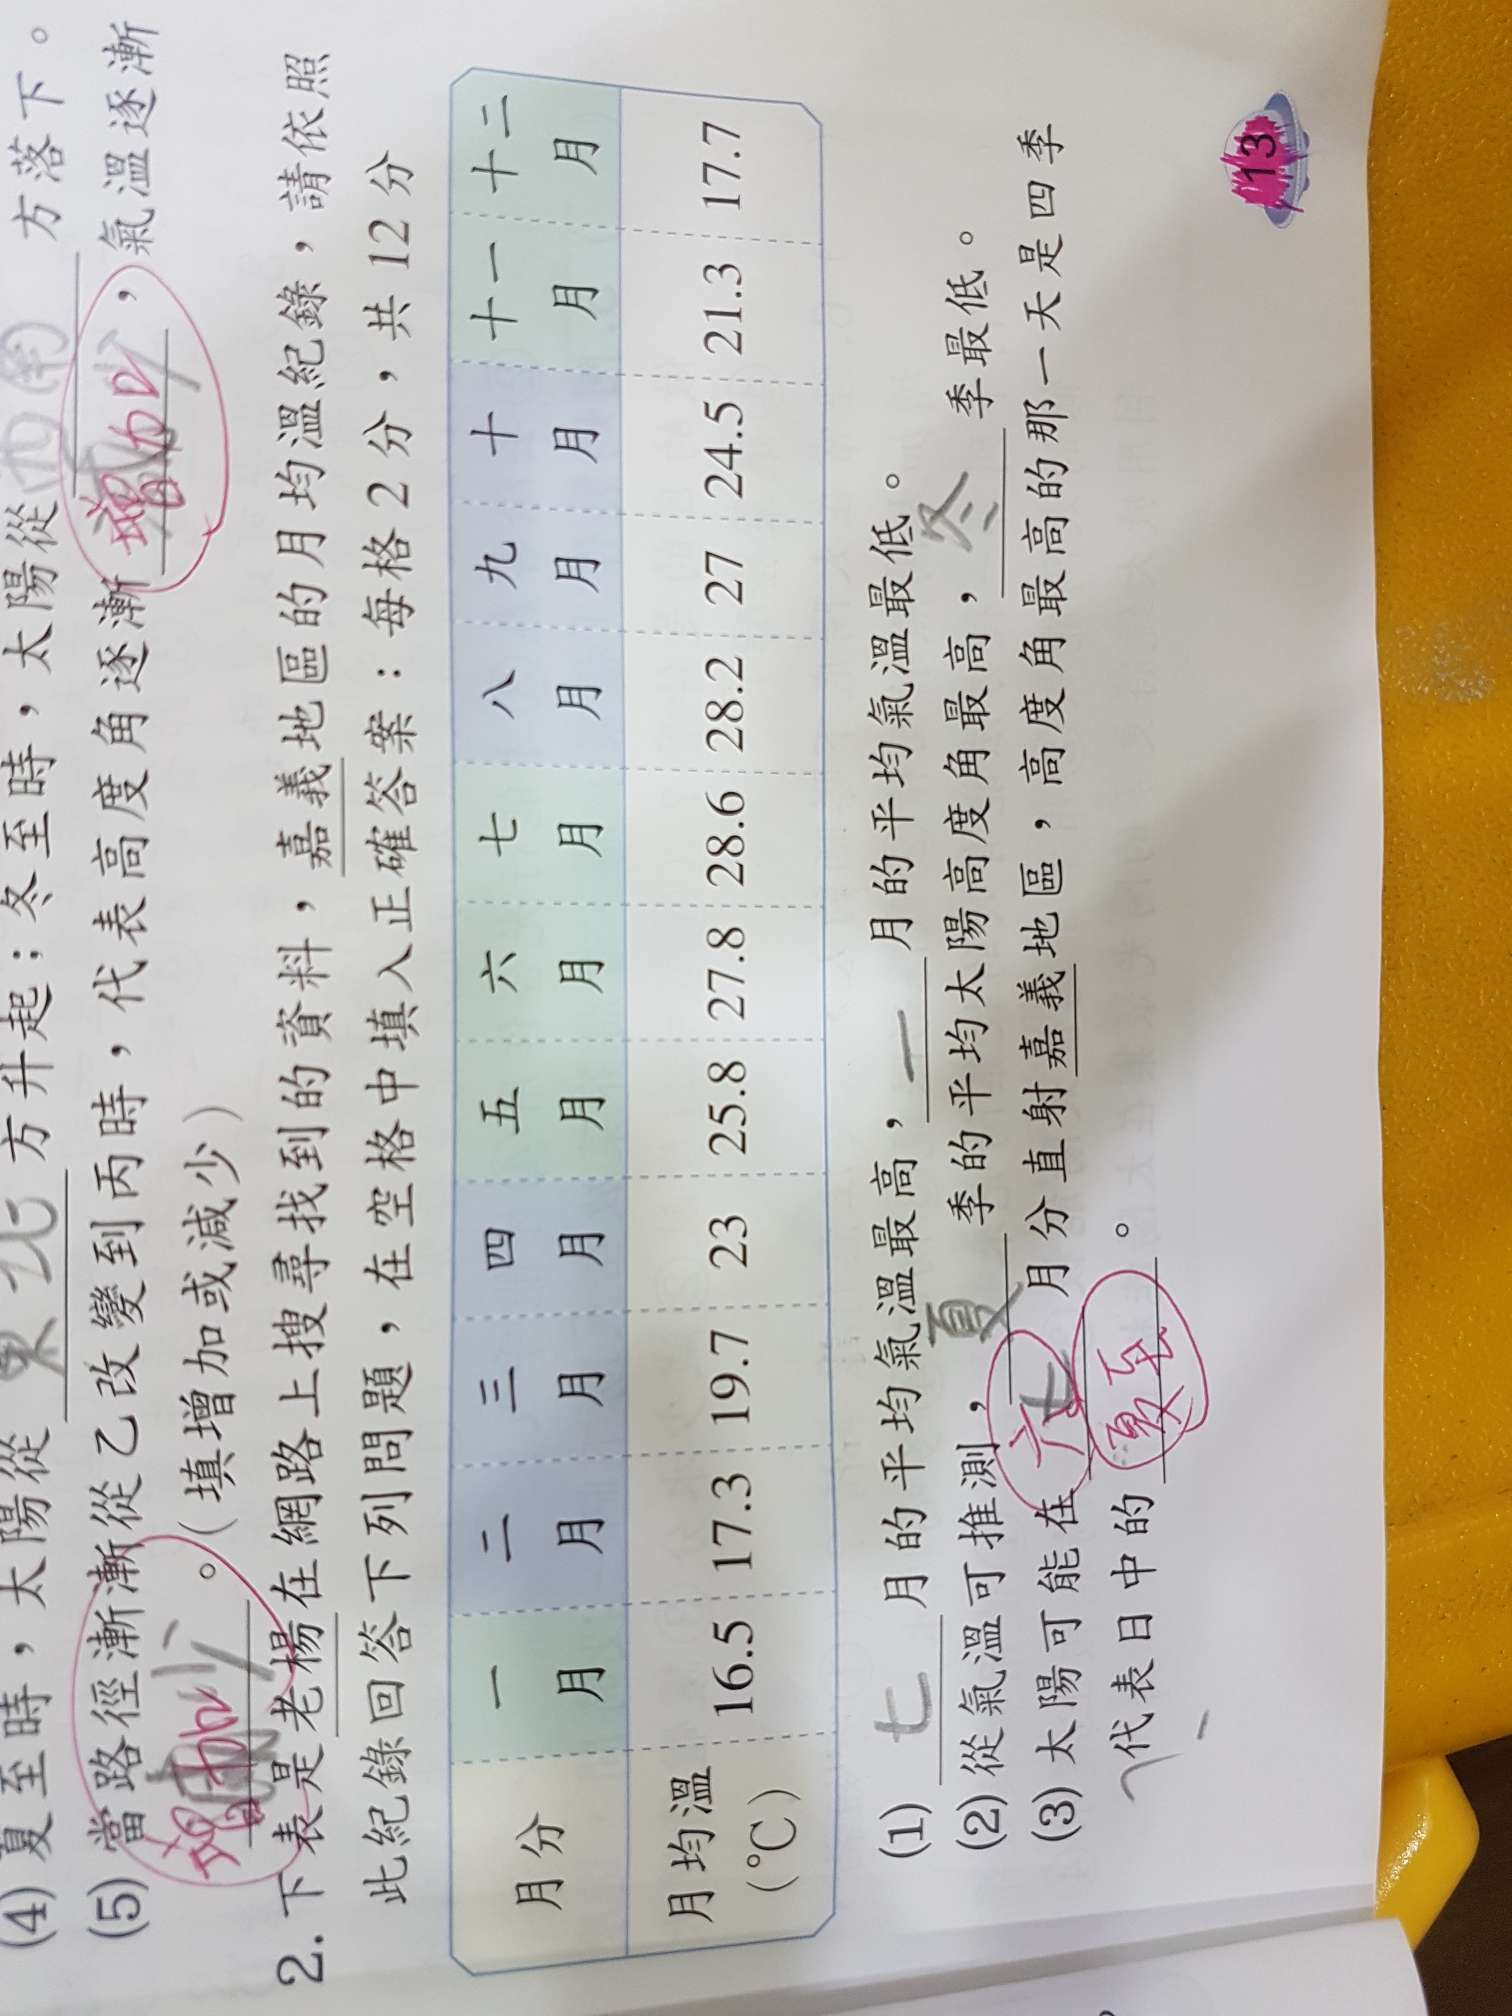 (4) 夏至時，太陽從 東北 方升起；冬至時，太陽從 西南 方落下。
(5) 當路徑漸漸從乙改變到丙時，代表高度角逐漸 增加，氣溫逐漸
增加。(填增加或減少)
2. 下表是老楊在網路上搜尋找到的資料，嘉義地區的月均溫紀錄，請依照
此紀錄回答下列問題，在空格中填入正確答案：每格2分，共12分
月分 一月 二月 三月 四月 五月 六月 七月 八月 九月 十月 十一月 十二月
月均溫(℃) 16.5 17.3 19.7 23 25.8 27.8 28.6 28.2 27 24.5 21.3 17.7
(1) 七 月的平均氣溫最高，一 月的平均氣溫最低。
(2) 從氣溫可推測，夏 季的平均太陽高度角最高，冬 季最低。
(3) 太陽可能在 六 七 月分直射嘉義地區，高度角最高的那一天是四季
代表日中的 夏至。
13